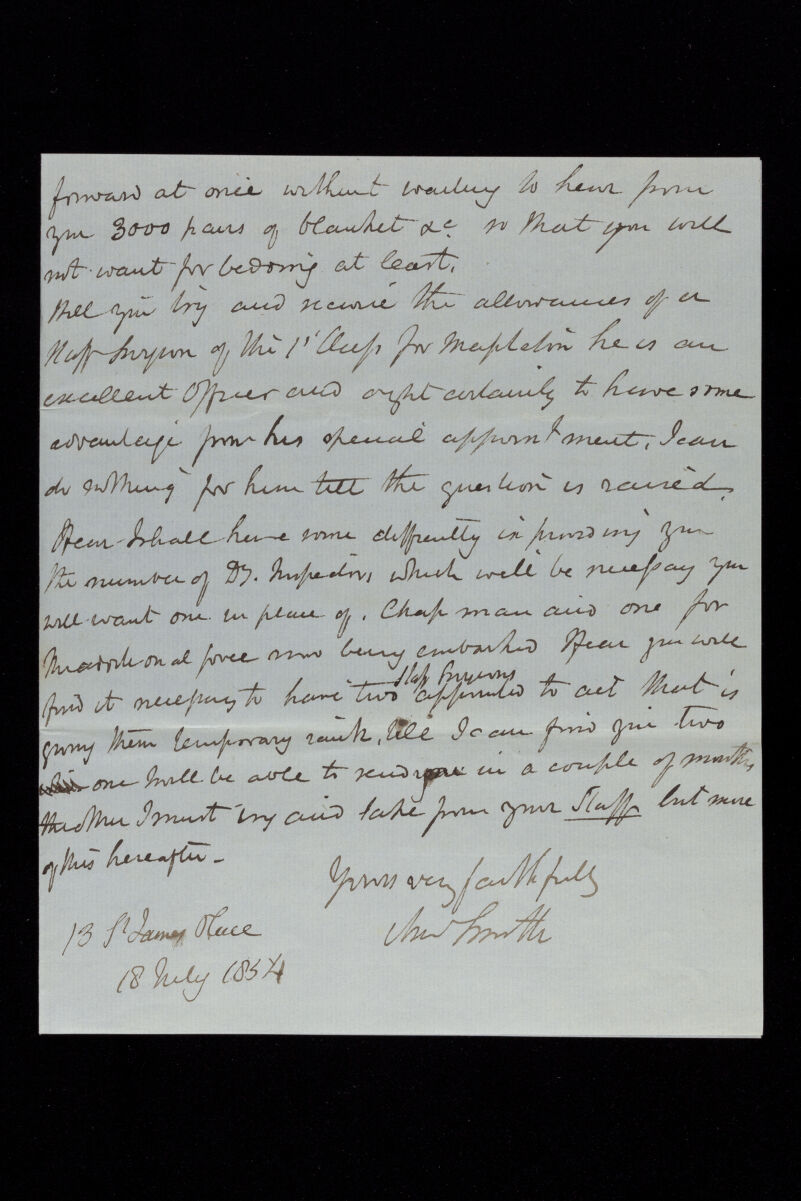 forward at once without waiting to hear from
you 3000 pairs of blanket &c. so that you will
not want for bedding at least.
Will you try and secure the allowances of a
Staff Surgeon of the 1st Class for Mapleton he is an
excellent Officer and ought certainly to have some
advantage from his special appointment. I can
do nothing for him till the question is raised.
I fear I shall have some difficulty in providing you
the number of Dy. Inspectors which will be necessary you
will want one in place of. Chapman and one for
the additional force now being embarked I fear you will
Staff Surgeons
find it necessary to have two appointed to act that is
giving them temporary rank, till I can find you two
one I will be able to send you in a couple of months
the other I must try and take from your Staff but more
of this hereafter -
Yours very faithfully
And Smith
13 St James Place
18 July 1854